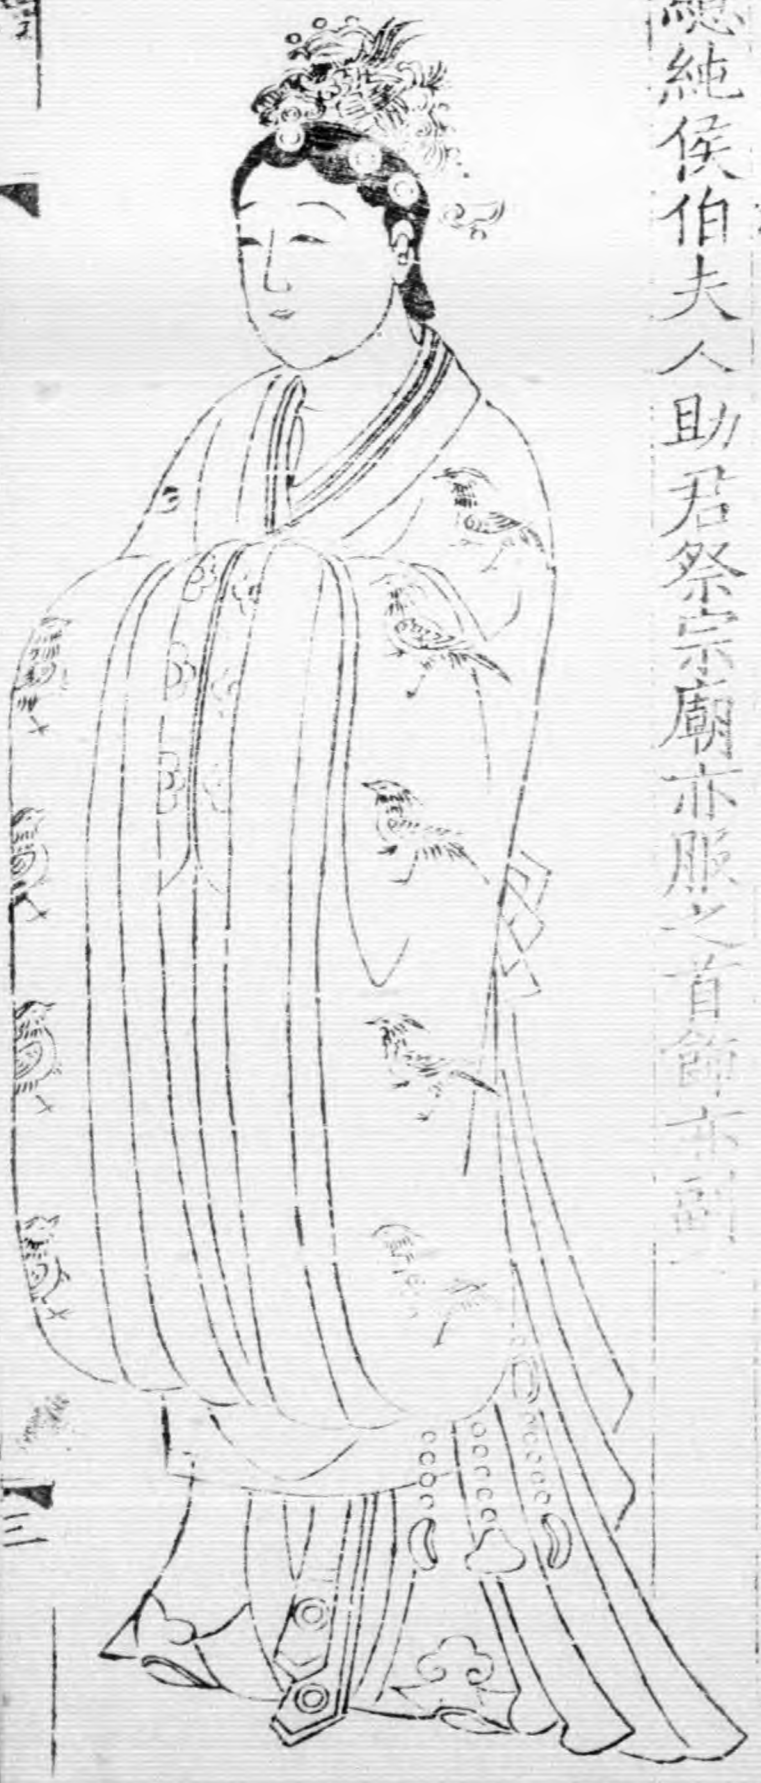 純侯伯夫人助君祭宗廟亦服之首飾亦副
三